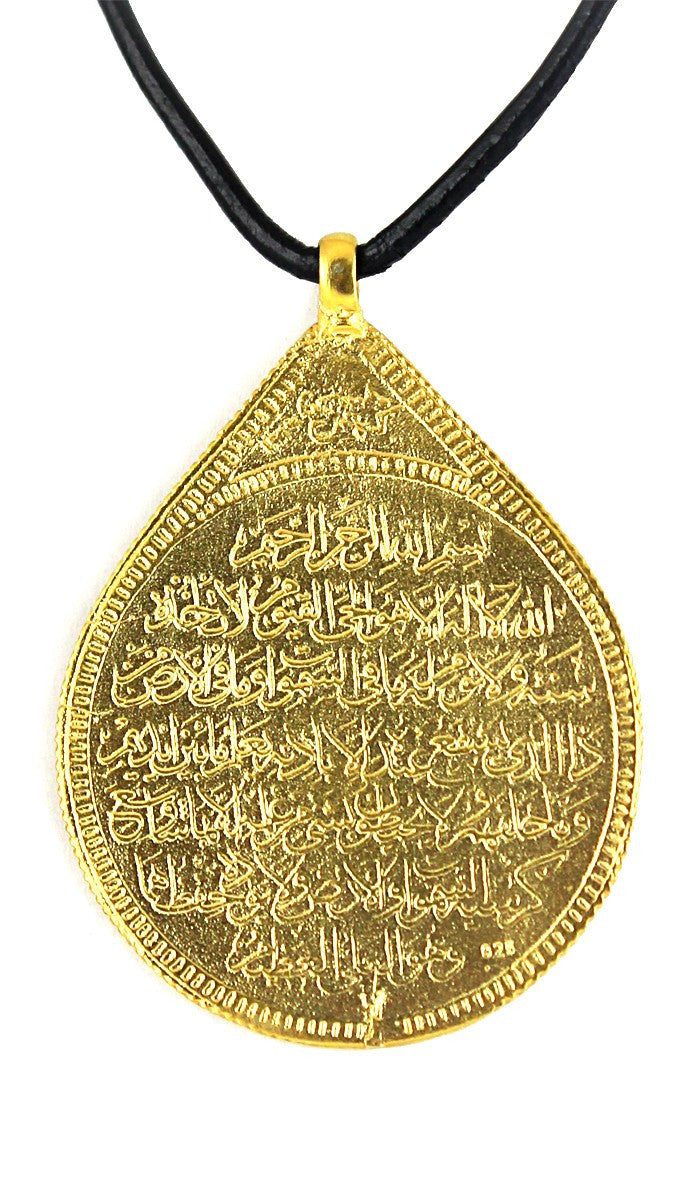 بسم الله الرحمن الرحيم
الله لا اله الا هو الحي القيوم لا تاخذه
سنة ولا نوم له ما في السموات وما في الارض من
ذا الذي يشفع عنده الا باذنه يعلم ما بين ايديهم
وما خلفهم ولا يحيطون بشيء من علمه الا بما شاء وسع
كرسيه السموات والارض ولا يؤده حفظهما
وهو العلي العظيم
925